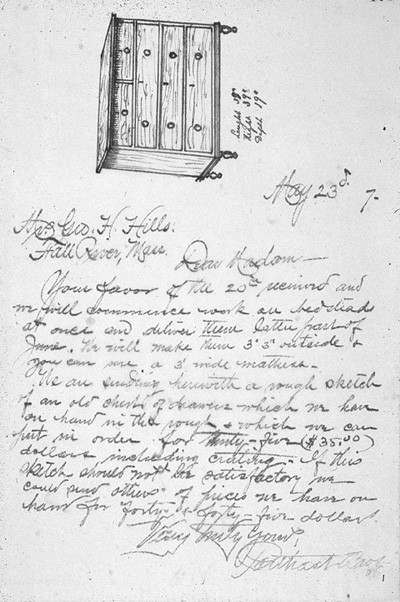 Length 39"
Hight 39"
Depth 19"
May 23d 7-
Mrs Geo. H. Hills:
Fall River, Mass.
Dear Madam—
Your favor of the 20th received and
we will commence work on bedsteads
at once and deliver them latter part of
June. We will make them 3'3" outside &
you can use a 3' wide mattress.
We are sending herewith a rough sketch
of an old chest of drawers which we have
on hand in the rough & which we can
put in order for thirty-five ($35.00)
dollars including crating. If this
sketch should not be satisfactory we
could send others of pieces we have on
hand for forty & forty-five dollars.
Very truly yours,